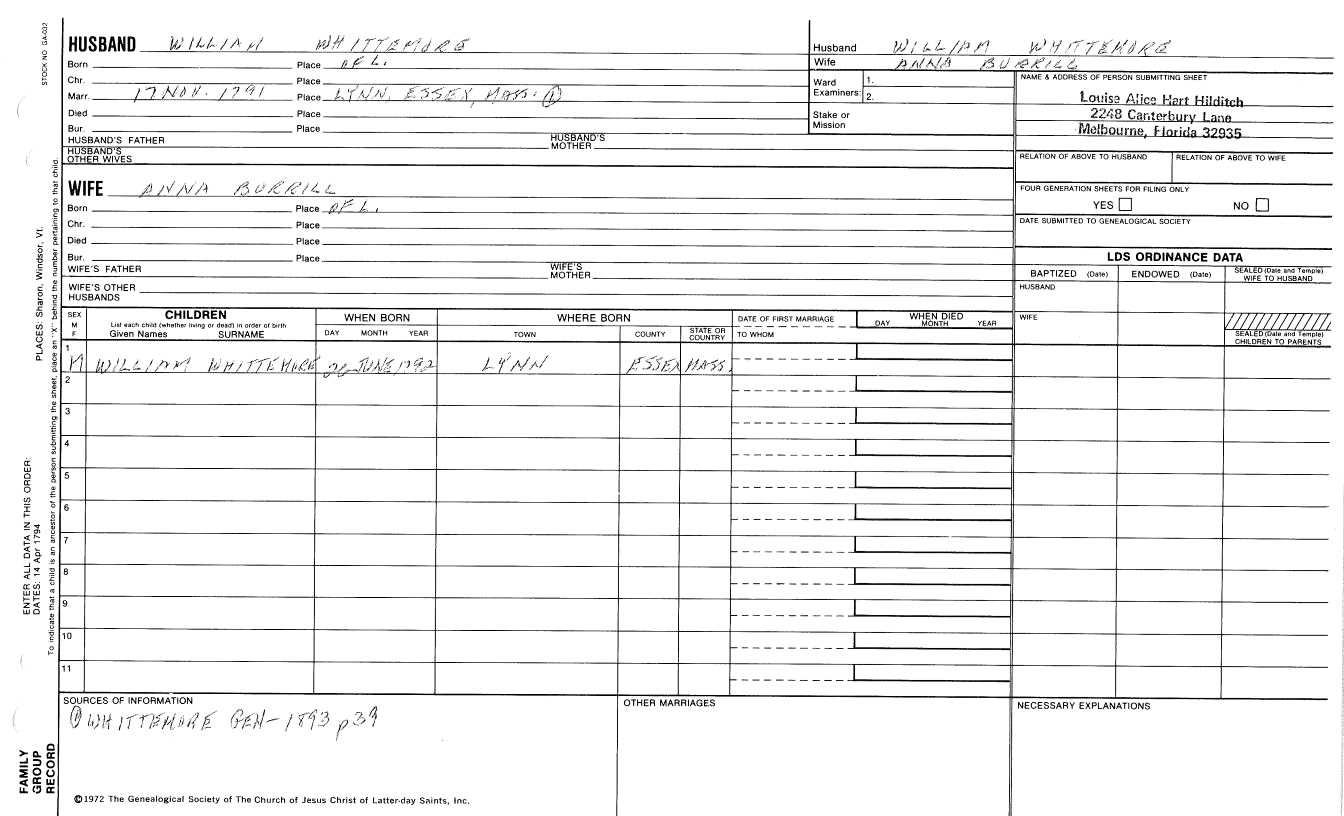 STOCK NO. GA-032
HUSBAND WILLIAM WHITTEMORE
Born Place OF L.
Chr. Place
Marr. 17 NOV. 1791 Place LYNN, ESSEX, MASS. ①
Died Place
Bur. Place
HUSBAND'S FATHER HUSBAND'S MOTHER
HUSBAND'S OTHER WIVES
WIFE ANNA BURRILL
Born Place OF L.
Chr. Place
Died Place
Bur. Place
WIFE'S FATHER WIFE'S MOTHER
WIFE'S OTHER HUSBANDS
Husband WILLIAM WHITTEMORE
Wife ANNA BURRILL
Ward Examiners: 1.
2.
Stake or Mission
NAME & ADDRESS OF PERSON SUBMITTING SHEET
Louise Alice Hart Hilditch
2248 Canterbury Lane
Melbourne, Florida 32935
RELATION OF ABOVE TO HUSBAND RELATION OF ABOVE TO WIFE
FOUR GENERATION SHEETS FOR FILING ONLY
YES NO
DATE SUBMITTED TO GENEALOGICAL SOCIETY
LDS ORDINANCE DATA
BAPTIZED (Date) ENDOWED (Date) SEALED (Date and Temple) WIFE TO HUSBAND
HUSBAND
WIFE
SEALED (Date and Temple) CHILDREN TO PARENTS
SEX M F
CHILDREN
List each child (whether living or dead) in order of birth
Given Names SURNAME
WHEN BORN
DAY MONTH YEAR
WHERE BORN
TOWN COUNTY STATE OR COUNTRY
DATE OF FIRST MARRIAGE
TO WHOM
WHEN DIED
DAY MONTH YEAR
1
M WILLIAM WHITTEMORE 26 JUNE 1792 LYNN ESSEX MASS.
2
3
4
5
6
7
8
9
10
11
SOURCES OF INFORMATION
① WHITTEMORE GEN-1893 p39
OTHER MARRIAGES
NECESSARY EXPLANATIONS
©1972 The Genealogical Society of The Church of Jesus Christ of Latter-day Saints, Inc.
FAMILY
GROUP
RECORD
ENTER ALL DATA IN THIS ORDER:
DATES: 14 Apr 1794
PLACES: Sharon, Windsor, Vt.
To indicate that a child is an ancestor of the person submitting the sheet, place an "X" behind the number pertaining to that child.